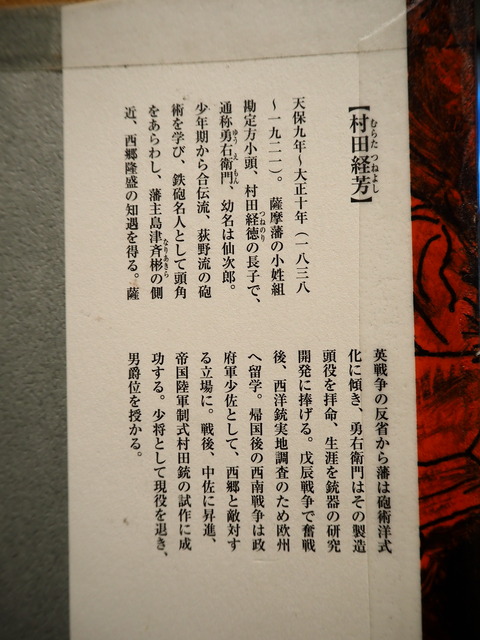 【村田経芳】
むらた つねよし
天保九年~大正十年(一八三八
~一九二一)。薩摩藩の小姓組
勘定方小頭、村田経徳の長子で、
つねのり
通称勇右衛門、幼名は仙次郎。
ゆうえもん
少年期から合伝流、荻野流の砲
術を学び、鉄砲名人として頭角
をあらわし、藩主島津斉彬の側
なりあきら
近、西郷隆盛の知遇を得る。薩
英戦争の反省から藩は砲術洋式
化に傾き、勇右衛門はその製造
頭役を拝命、生涯を銃器の研究
開発に捧げる。戊辰戦争で奮戦
後、西洋銃実地調査のため欧州
へ留学。帰国後の西南戦争は政
府軍少佐として、西郷と敵対す
る立場に。戦後、中佐に昇進、
帝国陸軍制式村田銃の試作に成
功する。少将として現役を退き、
男爵位を授かる。